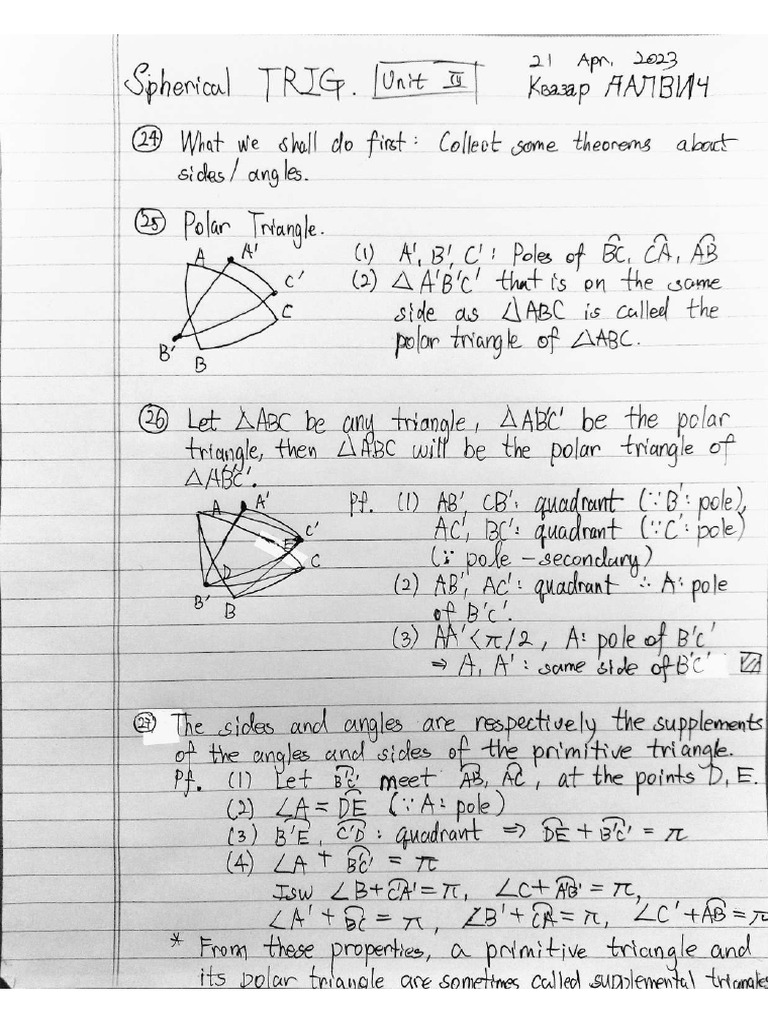 Spherical TRIG. Unit IV
21 Apr, 2023
Квазар ДАЛВИЧ
24 What we shall do first: Collect some theorems about
sides/angles.
25 Polar Triangle.
A A'
C'
C
B'
B
(1) A', B', C': Poles of BC, CA, AB
(2) △A'B'C' that is on the same
side as △ABC is called the
polar triangle of △ABC.
26 Let △ABC be any triangle, △A'B'C' be the polar
triangle, then △ABC will be the polar triangle of
△A'B'C'.
A A'
C'
E
C
D
B'
B
Pf. (1) AB', CB': quadrant (∵B': pole),
AC', BC': quadrant (∵C': pole)
(∵ pole - secondary)
(2) AB', AC': quadrant ∴ A: pole
of B'C'.
(3) AA' < π/2, A: pole of B'C'
⇒ A, A': same side of B'C'
27 The sides and angles are respectively the supplements
of the angles and sides of the primitive triangle.
Pf. (1) Let B'C' meet AB, AC, at the points D, E.
(2) ∠A = DE (∵A: pole)
(3) B'E, C'D: quadrant ⇒ DE + B'C' = π
(4) ∠A + B'C' = π
Isw ∠B + C'A' = π, ∠C + A'B' = π,
∠A' + BC = π, ∠B' + CA = π, ∠C' + AB = π
* From these properties, a primitive triangle and
its polar triangle are sometimes called supplemental triangles